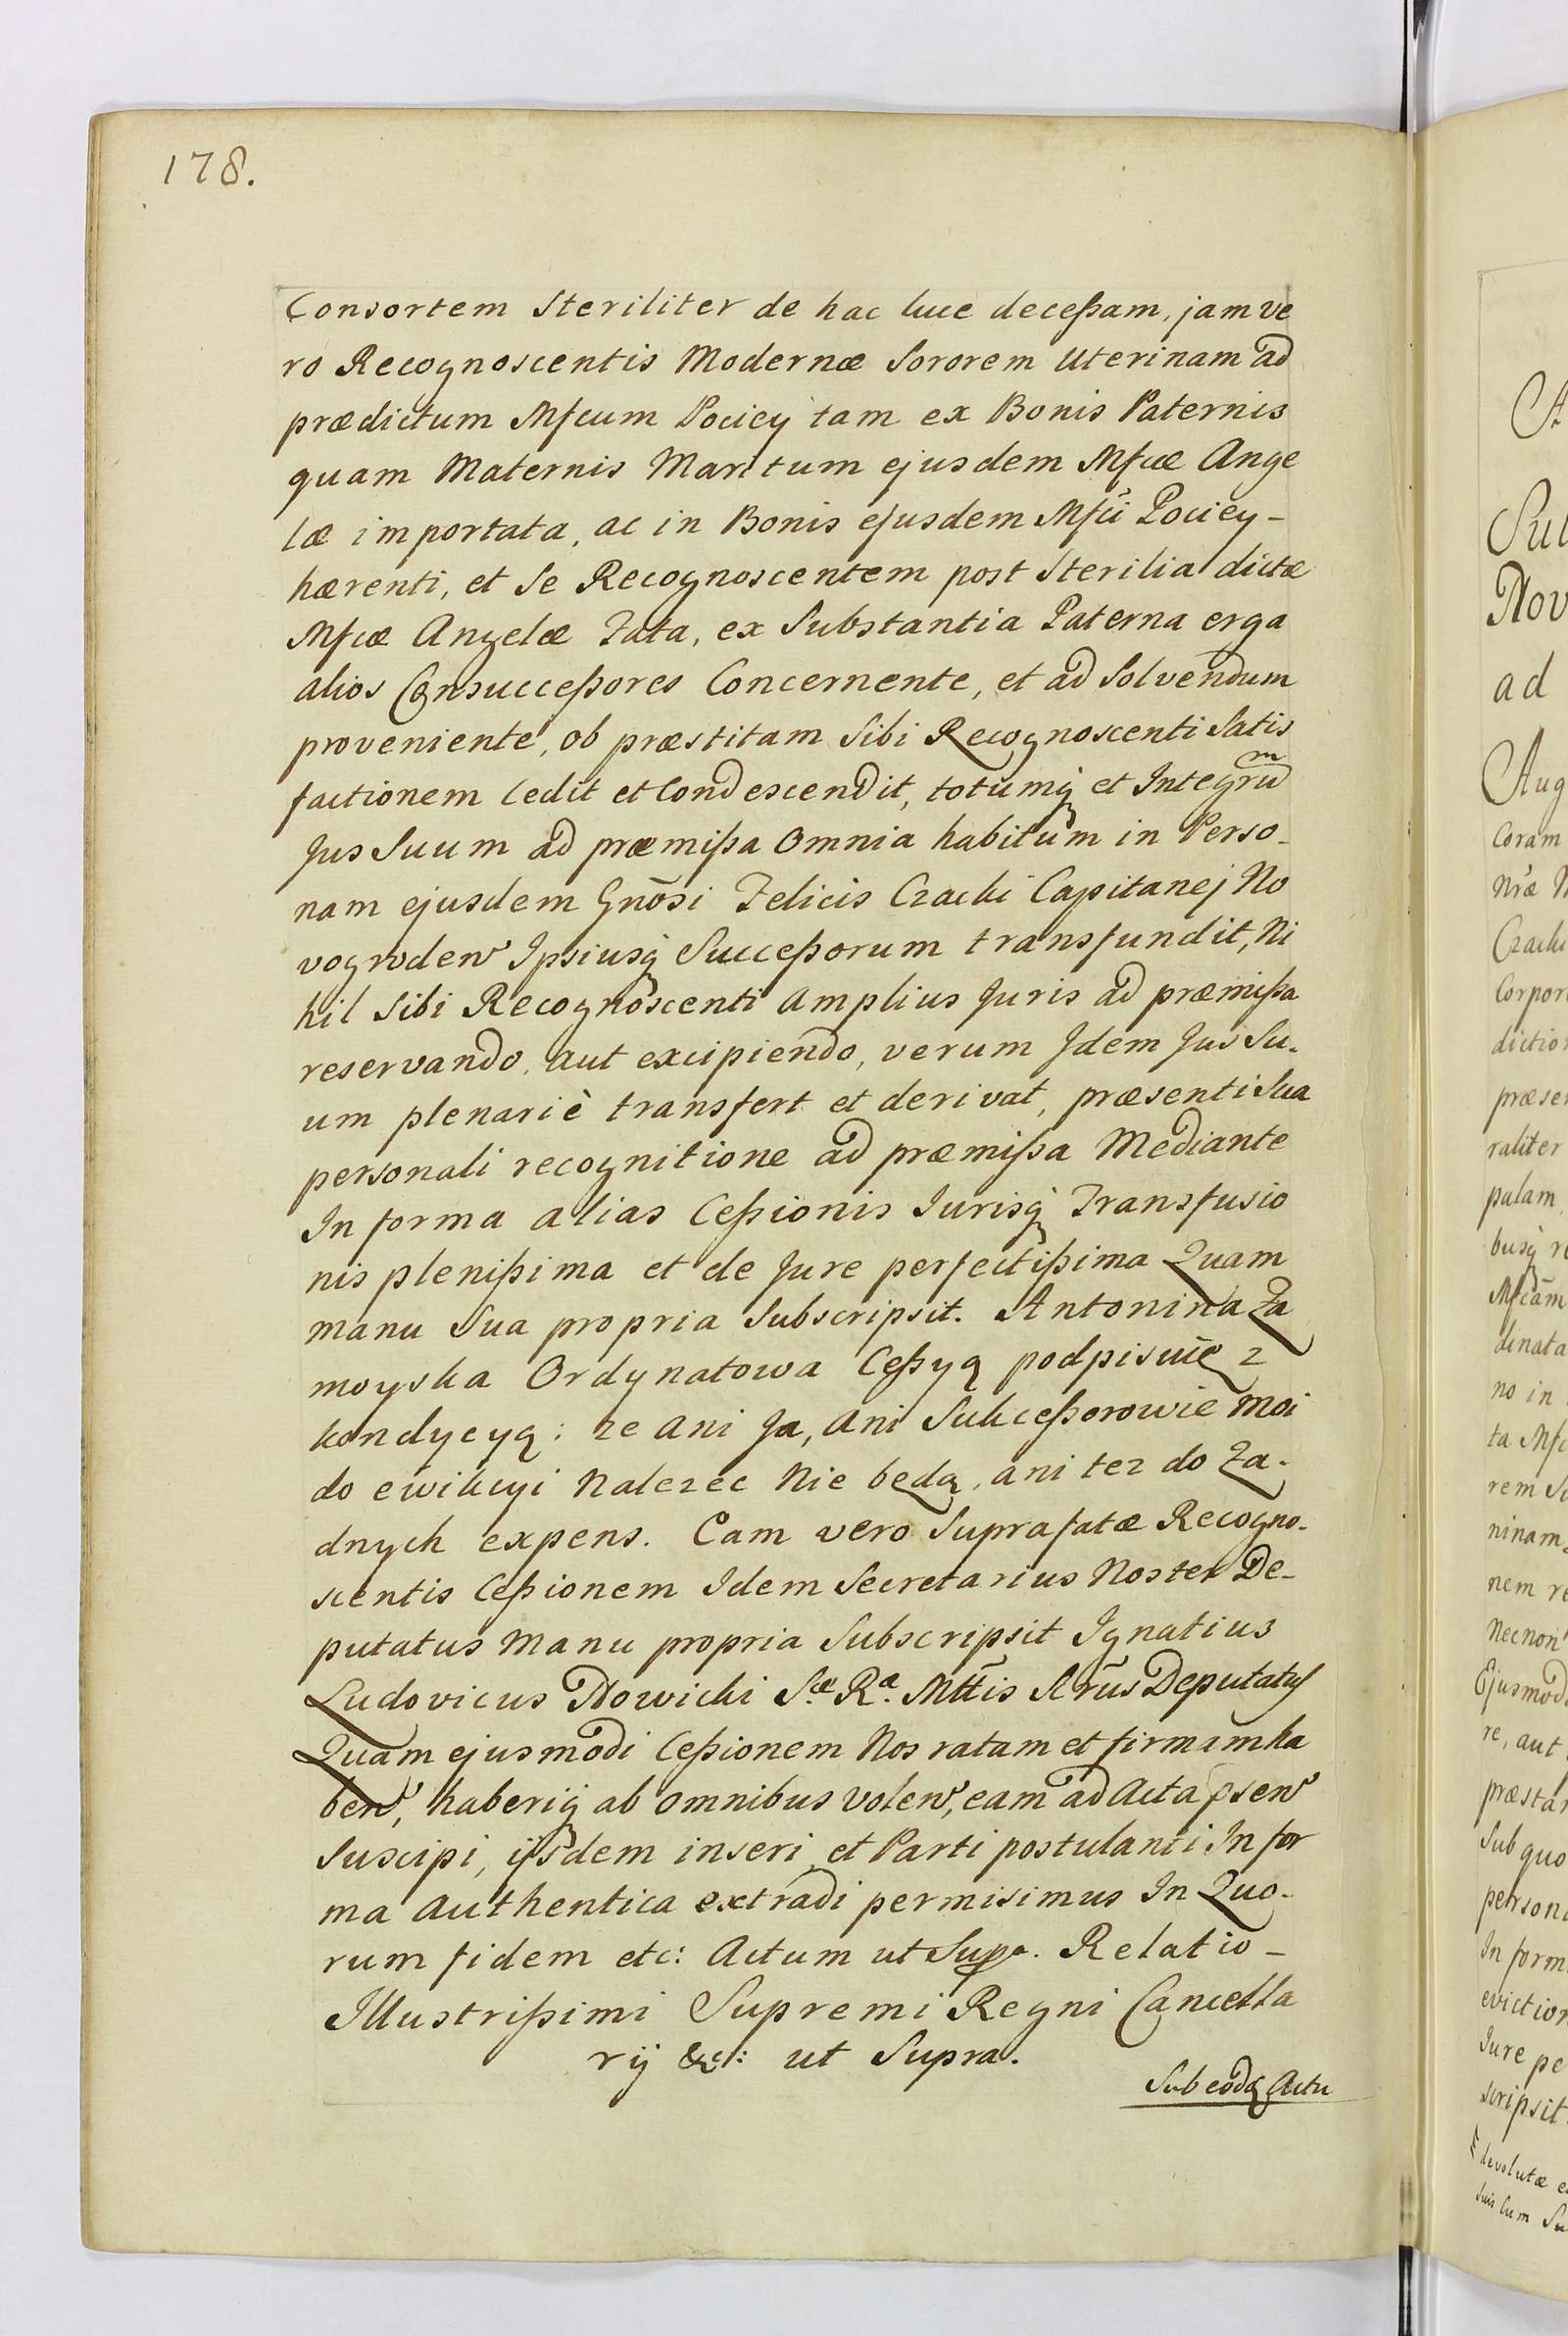 178.
Consortem Steriliter de hac luce deceßam, jam ve
ro Recognoscentis Modernæ Sororem Uterinam ad
prædictum Mfcum Pociey tam ex Bonis Paternis
quam Maternis Maritum ejusdem Mfcæ Ange
læ importata, ac in Bonis ejusdem Mfci Pociey-
hærenti, et Se Recognoscentem post Sterilia dictæ
Mfcæ Angelæ Fata, ex Substantia Paterna erga
alios Consucceßores Concernente, et ad Solvendum
proveniente, ob præstitam Sibi Recognoscenti Satis
factionem Cedit et Condescendit, totumq et Integrum
Jus Suum ad præmißa Omnia habitum in Perso-
nam ejusdem Gnōsi Felicis Czacki Capitanej No
vogroden Ipsiusq Succeßorum transfundit, Ni
hil Sibi Recognoscenti Amplius Juris ad præmißa
reservando, aut excipiendo, verum Jdem Jus Su-
um plenariè transfert et derivat, præsenti Sua
personali recognitione ad præmißa Mediante
In forma alias Ceßionis Jurisq Transfusio
nis plenißima et de Jure perfectißima Quam
manu Sua propria Subscripsit. Antonina Za
moyska Ordynatowa Ceßyą podpisuię z
kondycyą: ze ani Ja, ani Sukceßorowie Moi
do ewikcyi Nalezec Nie będą, ani tez do Za-
dnych expens. Eam vero Suprafatæ Recogno-
scentis Ceßionem Idem Secretarius Noster De-
putatus Manu propria Subscripsit Ignatius
Ludovicus Nowicki Sæ Ræ Mttis Srius Deputatus
Quam ejusmodi Ceßionem Nos ratam et firmam ha
ben, haberiq ab omnibus volen, eam ad Acta psen
Suscipi, ijsdem inseri, et Parti postulanti In for
ma Authentica extradi permisimus In Quo-
rum fidem etc: Actum ut Supa. Relatio-
Illustrißimi Supremi Regni Cancella
rij &c: ut Supra.
Sub eodq Actu
A
Sub
Nov
ad
Aug
Coram
Nræ N
Czacki
Corpor
dictior
præsen
raliter
palam
busq re
Mfcam
dinata
no in
ta Mfc
rem Su
ninam
nem re
Necnon
Ejusmodi
re, aut
præstar
Sub quo
persona
In form
eviction
Jure pe
scripsit
devolutæ e
Suis cum Su